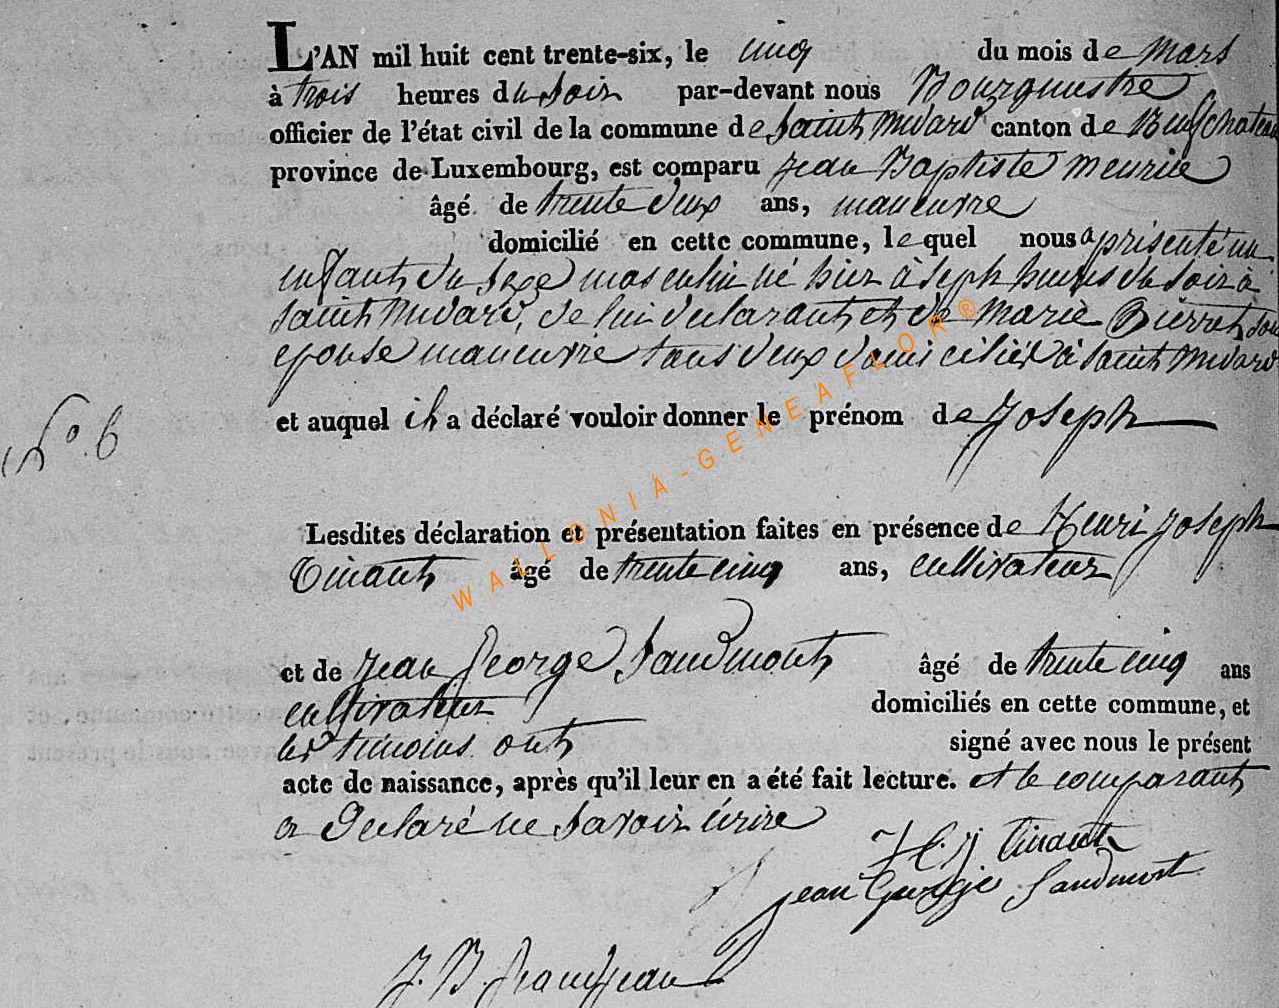 L'AN mil huit cent trente-six, le cinq du mois de Mars
à trois heures du Soir par-devant nous Bourguestre
officier de l'état civil de la commune de Saint Médard canton de Neufchateau
province de Luxembourg, est comparu Jean Baptiste Meurice
âgé de trente deux ans, maneuvre
domicilié en cette commune, lequel nous a présenté un
enfant du sexe masculin né hier à Sept heures du Soir à
Saint Médard, de lui declarant et de Marie Pierret son
epouse maneuvre tous deux domicilié à Saint Médard
et auquel il a déclaré vouloir donner le prénom de Joseph
No. 6
Lesdites déclaration et présentation faites en présence de Henri Joseph
Tinant âgé de trente cinq ans, cultivateur
et de Jean George Saudmont âgé de trente cinq ans
cultivateur domiciliés en cette commune, et
les temoins ont signé avec nous le présent
acte de naissance, après qu'il leur en a été fait lecture. et le comparant
a Declaré ne Savoir écrire
H. J Tinant
Jean George Saudmont
J. B. Grandjean
WALLONIA-GENEAFLOR®